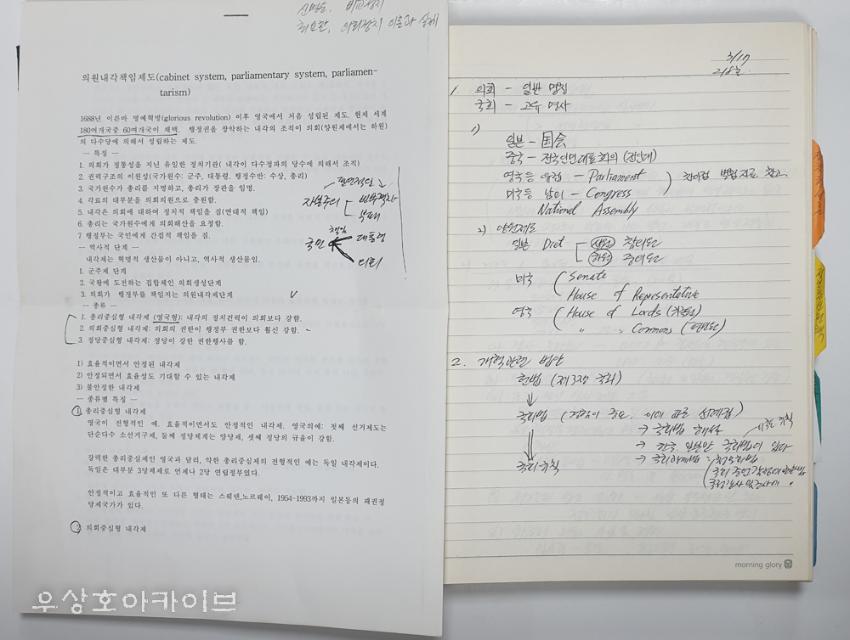 신명순, 비교정치
의회정치 이론과 실제
의원내각책임제도(cabinet system, parliamentary system, parliamen-
tarism)
1688년 이른바 명예혁명(glorious revolution) 이후 영국에서 처음 성립된 제도 현제 세계
180여개국중 60여개국이 채택. 행정권을 장악하는 내각의 조직이 의회(양원제에서는 하원)
의 다수당에 의해서 성립하는 제도.
— 특징 —
1. 의회가 정통성을 지닌 유일한 정치기관( 내각이 다수정파의 당수에 의해서 조직)
2. 권력구조의 이원성(국가원수: 군주, 대통령, 행정수반: 수상, 총리)
3. 국가원수가 총리를 지명하고, 총리가 장관을 임명.
4. 각료의 대부분을 의회의원으로 충원함.
5. 내각은 의회에 대하여 정치적 책임을 짐(연대적 책임)
6. 총리는 국가원수에게 의회해산을 요청함.
7 행정부는 국민에게 간접적 책임을 짐.
— 역사적 단계 —
내각제는 혁명적 생산물이 아니고, 역사적 생산물임.
1. 군주제 단계
2. 국왕에 도전하는 집합체인 의회생성단계
3. 의회가 행정부를 책임지는 의원내각제단계
— 종류 —
1. 총리중심형 내각제 (영국형): 내각의 정치권력이 의회보다 강함.
2. 의회중심형 내각제: 의회의 권한이 행정부 권한보다 훨신 강함.
3. 정당중심형 내각제: 정당이 강한 권한행사를 함.
1) 효율적이면서 안정된 내각제
2) 안정되면서 효율성도 기대할 수 있는 내각제
3) 불안정한 내각제
— 종류별 특징 —
1 총리중심형 내각제
영국이 전형적인 예. 효율적이면서도 안정적인 내각제. 영국의예: 첫째 선거제도는
단순다수 소선거구제, 둘째 정당체계는 양당제, 셋째 정당의 규율이 강함.
강력한 총리중심제인 영국과 달리, 약한 총리중심제의 전형적인 예는 독일 내각제이다.
독일은 대부분 3당체제로 언제나 2당 연립정부였다.
안정적이고 효율적인 또 다른 형태는 스웨덴,노르웨이, 1954-1993까지 일본등의 패권정
당체국가가 있다.
2 의회중심형 내각제
자본주의
국민
대통령
우상호아카이브
3/17
1. 의회 - 일반 명칭
국회 - 고유 명사
1)
일본 - 国会
중국 - 전국인민대표회의 (전인대)
영국 등 유럽 - Parliament
미국 등 남미 - Congress
National Assembly
2) 양원제도
일본 Diet
상원 참의원
하원 중의원
미국 Senate
House of Representative
영국 House of Lords
" " Commons
2. 개혁관련 법안
헌법 (제3장 국회)
국회법
→ 국회법 해석
국회규칙
morning glory